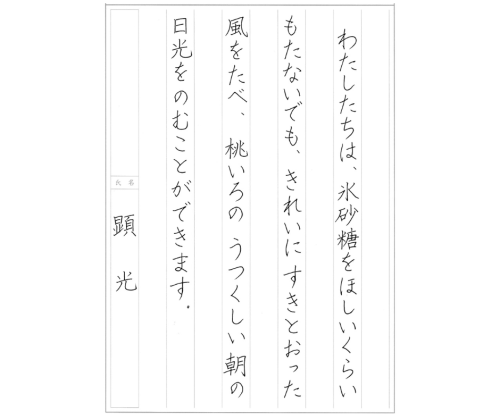 わたしたちは、氷砂糖をほしいくらい
もたないでも、きれいにすきとおった
風をたべ、桃いろのうつくしい朝の
日光をのむことができます。
氏名
顕光